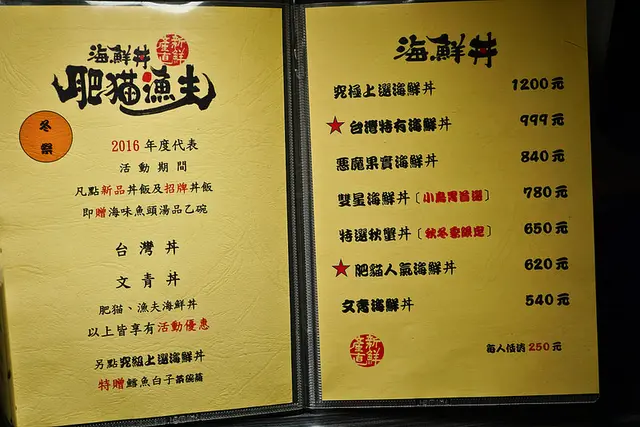 海鮮丼
新鮮
產直
肥猫漁夫
冬祭
2016 年度代表
活動期間
凡點新品丼飯及招牌丼飯
即贈海味魚頭湯品乙碗
台灣丼
文青丼
肥猫、漁夫海鮮丼
以上皆享有活動優惠
另點究組上選海鮮丼
特贈鱈魚白子茶碗蒸
海鮮丼
究極上選海鮮丼 1200元
★台灣特有海鮮丼 999元
惡魔果實海鮮丼 840元
雙星海鮮丼〔小鳥胃首選〕 780元
特選秋蟹丼〔秋冬季限定〕 650元
★肥貓人氣海鮮丼 620元
文青海鮮丼 540元
新鮮
產直
每人低消 250元